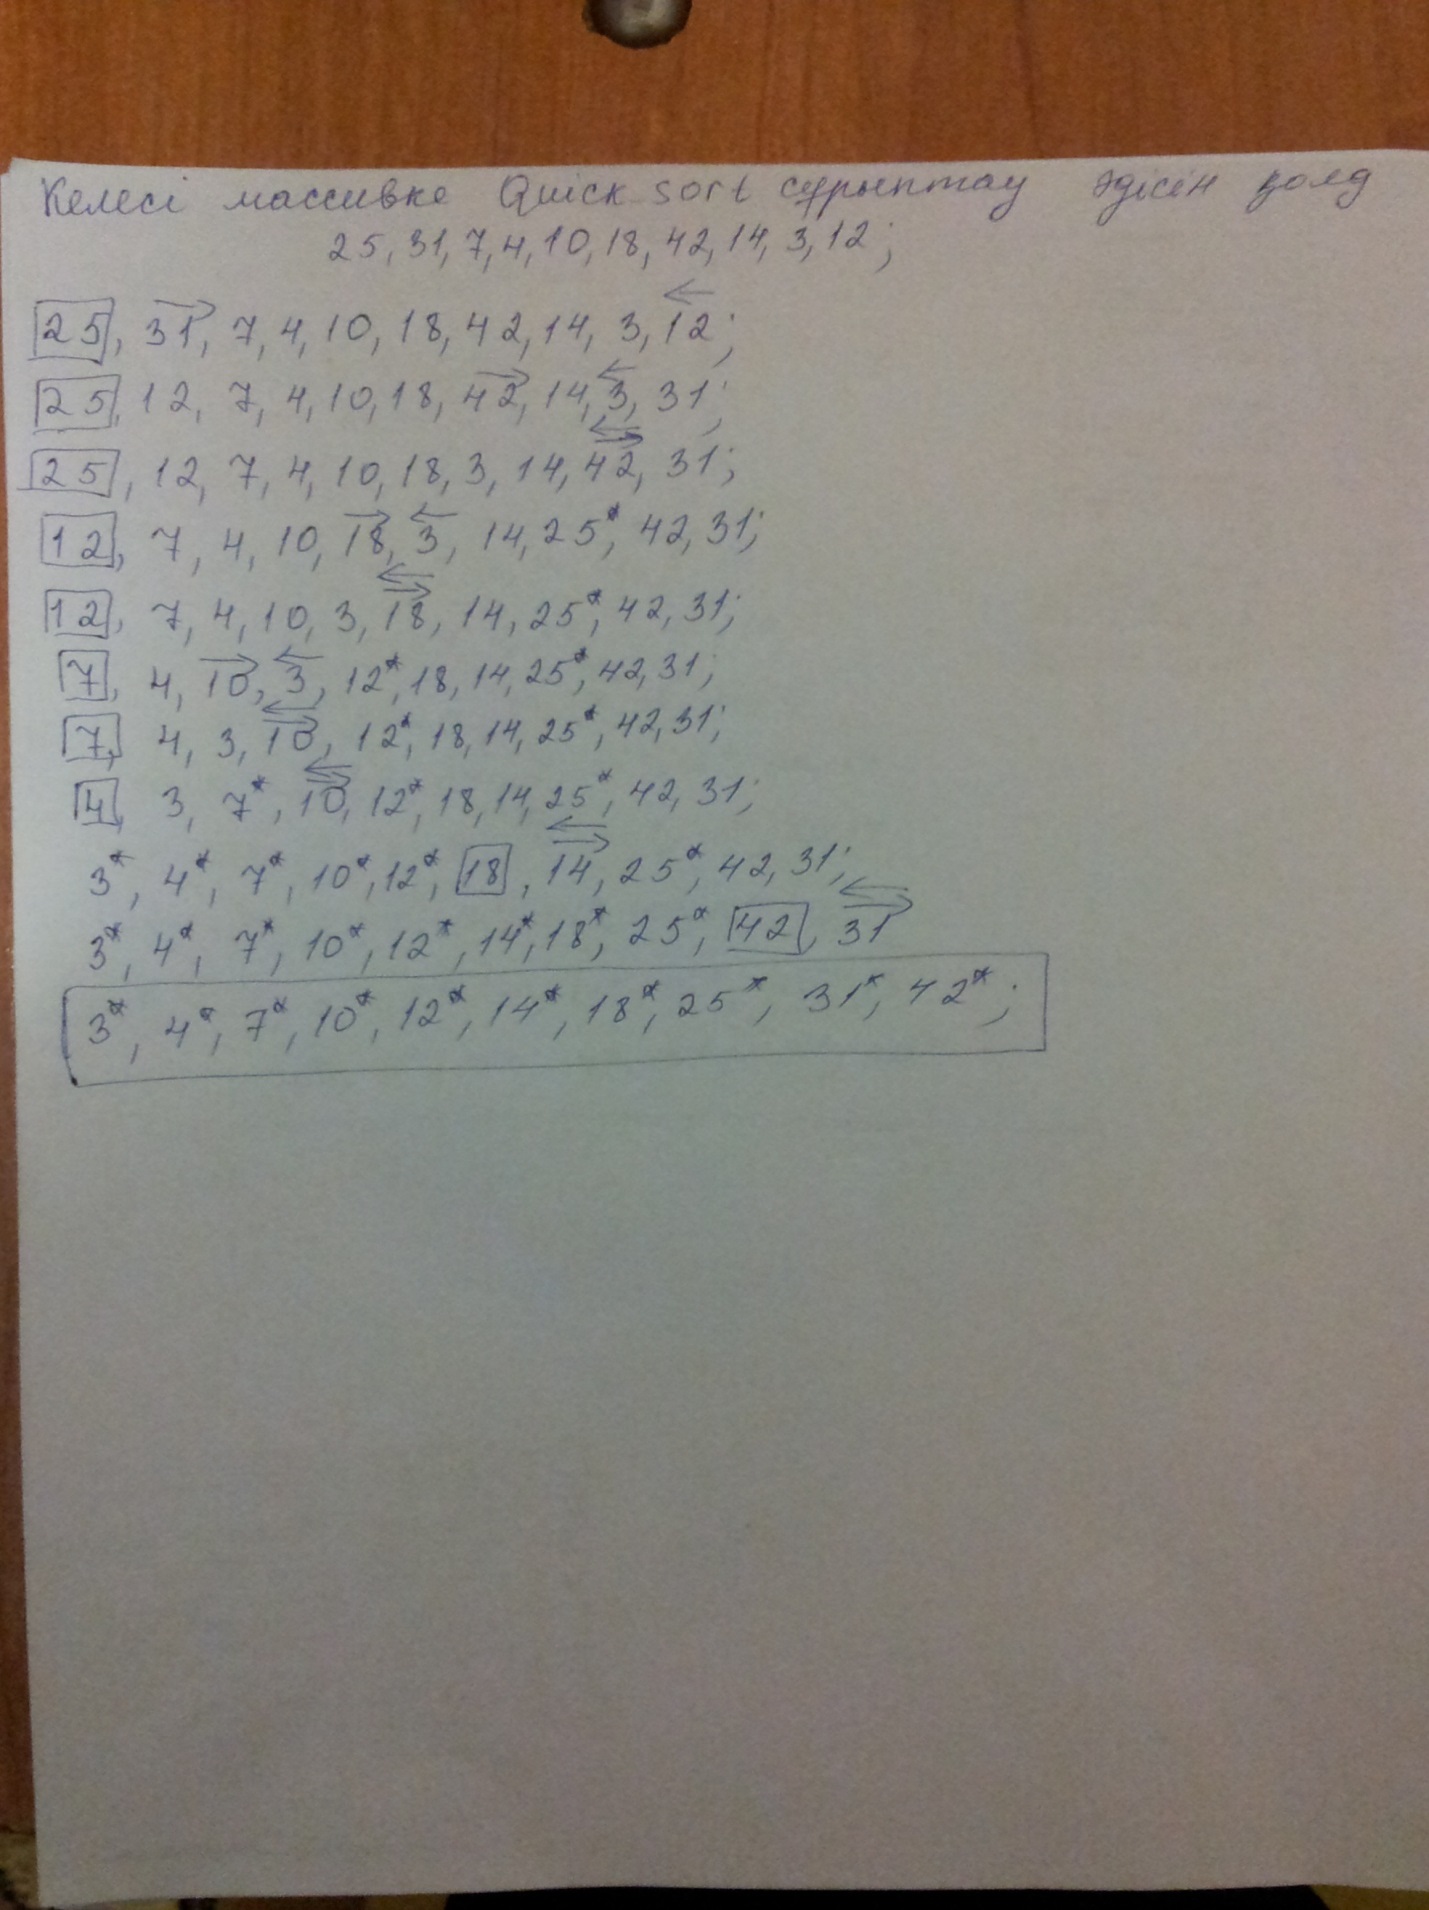 Келесі массивке Quick sort сұрыптау әдісін қолд
25, 31, 7, 4, 10, 18, 42, 14, 3, 12;
25, 31, 7, 4, 10, 18, 42, 14, 3, 12;
25, 12, 7, 4, 10, 18, 42, 14, 3, 31;
25, 12, 7, 4, 10, 18, 3, 14, 42, 31;
12, 7, 4, 10, 18, 3, 14, 25*, 42, 31;
12, 7, 4, 10, 3, 18, 14, 25*, 42, 31;
7, 4, 10, 3, 12*, 18, 14, 25*, 42, 31;
7, 4, 3, 10, 12*, 18, 14, 25*, 42, 31;
4, 3, 7*, 10, 12*, 18, 14, 25*, 42, 31;
3*, 4*, 7*, 10*, 12*, 18, 14, 25*, 42, 31;
3*, 4*, 7*, 10*, 12*, 14*, 18*, 25*, 42, 31
3*, 4*, 7*, 10*, 12*, 14*, 18*, 25*, 31*, 42*;